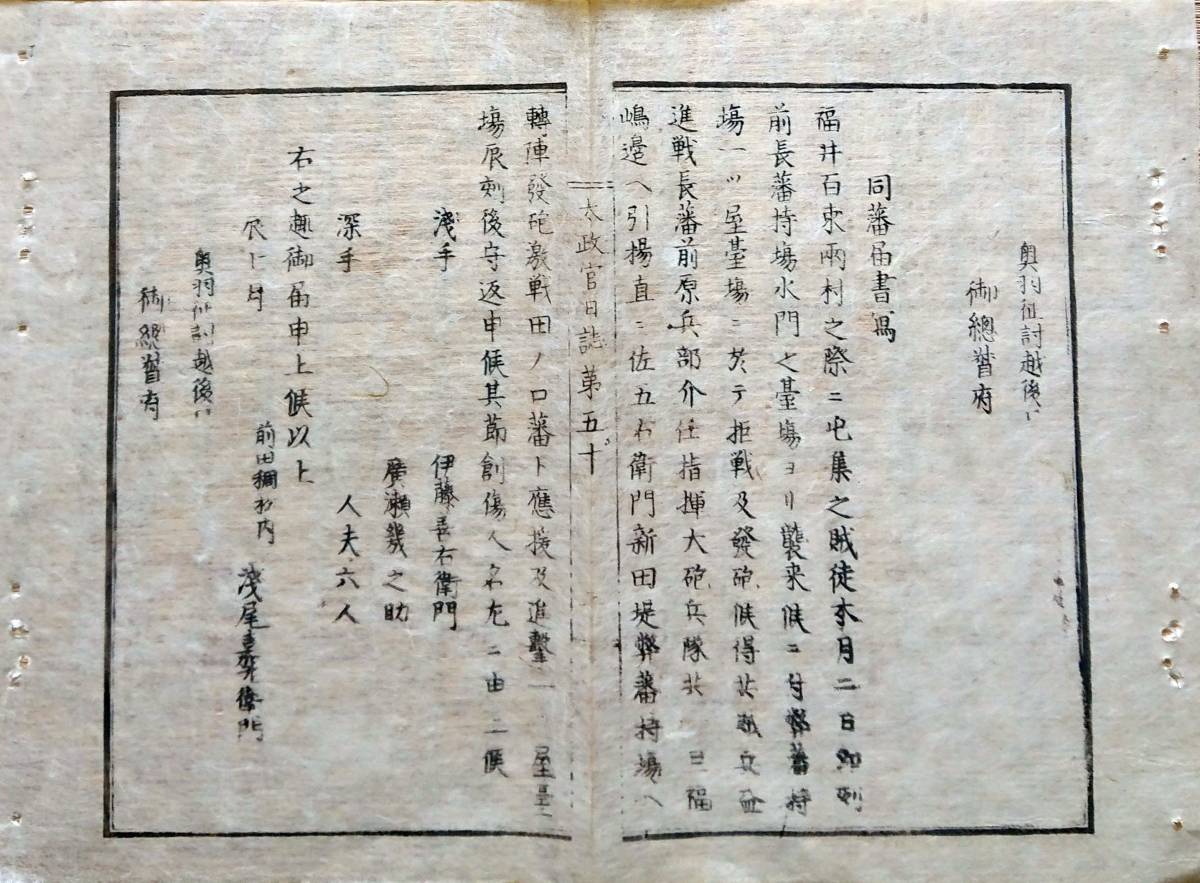 奥羽征討越後口
御總督府
同藩届書寫
福井百束兩村之際ニ屯集之賊徒本月二日卯刻
前長藩持場水門之臺場ヨリ襲来候ニ付弊藩持
場一ツ屋臺場ニ於テ拒戦及發砲候得共賊兵益
進戦長藩前原兵部介任指揮大砲兵隊共ヨ福
嶋邉ヘ引揚直ニ佐五右衛門新田堤弊藩持場ヘ
太政官日誌第五十
轉陣發砲激戦田ノ口藩ト應援及進撃一屋臺
場辰刻後守返申候其節創傷人名左ニ由ニ候
淺手 伊藤喜右衛門
廣瀬幾之助
深手 人夫六人
右之趣御届申上候以上
辰七月 前田稠松内
淺尾喜弥衛門
奥羽征討越後口
御總督府